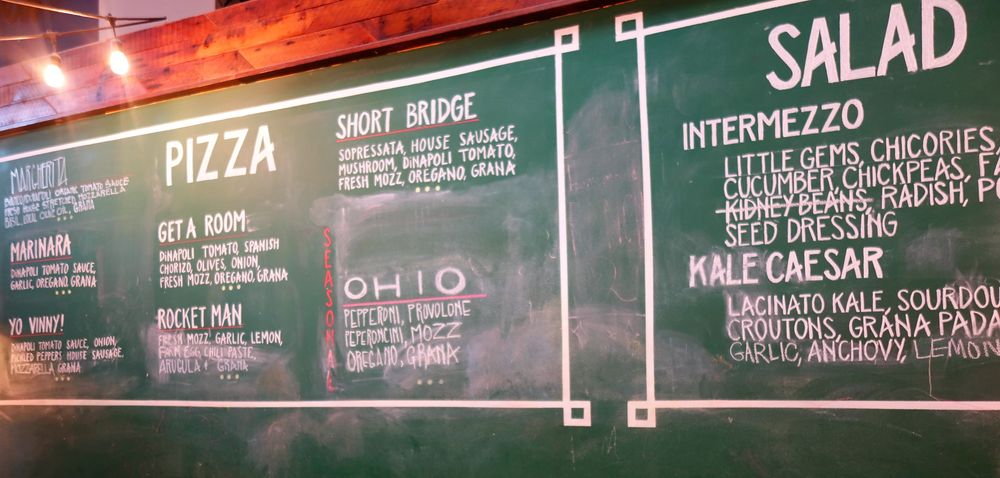 PIZZA
MARGHERITA
ORGANIC TOMATO SAUCE
FRESH HOUSE STRETCHED MOZZARELLA
BASIL, LOCAL OLIVE OIL, GRANA
MARINARA
DINAPOLI TOMATO SAUCE,
GARLIC, OREGANO, GRANA
YO VINNY!
DINAPOLI TOMATO SAUCE, ONION,
PICKLED PEPPERS HOUSE SAUSAGE,
MOZZARELLA GRANA
GET A ROOM
DINAPOLI TOMATO, SPANISH
CHORIZO, OLIVES, ONION,
FRESH MOZZ, OREGANO, GRANA
ROCKET MAN
FRESH MOZZ, GARLIC, LEMON,
FARM EGG, CHILI PASTE,
ARUGULA + GRANA
SHORT BRIDGE
SOPRESSATA, HOUSE SAUSAGE,
MUSHROOM, DINAPOLI TOMATO,
FRESH MOZZ, OREGANO, GRANA
SEASONAL
OHIO
PEPPERONI, PROVOLONE
PEPERONCINI, MOZZ
OREGANO, GRANA
SALAD
INTERMEZZO
LITTLE GEMS, CHICORIES,
CUCUMBER CHICKPEAS, FA
KIDNEY BEANS, RADISH, P
SEED DRESSING
KALE CAESAR
LACINATO KALE, SOURDOU
CROUTONS, GRANA PADA
GARLIC, ANCHOVY, LEMON